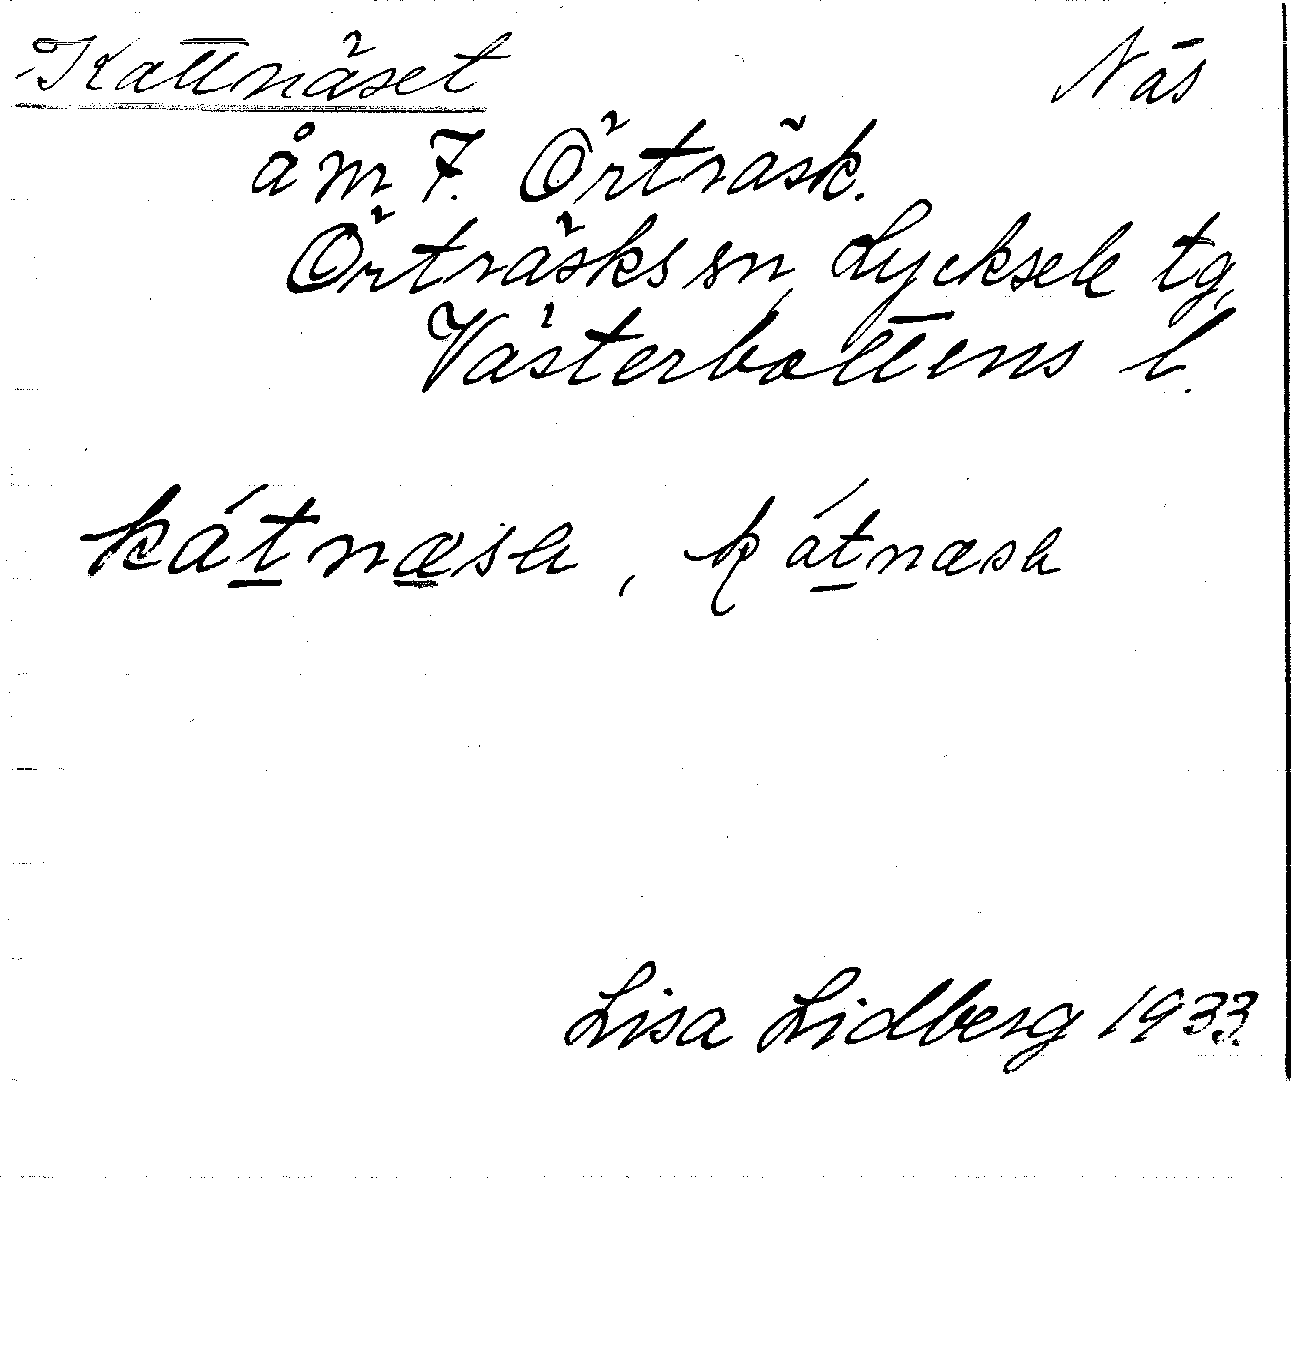 Kattnäset Näs
åm 7. Örträsk.
Örträsks sn, Lycksele tg,
Västerbottens l.
kátnæsa, kátnæsa
Lisa Lidberg 1933.